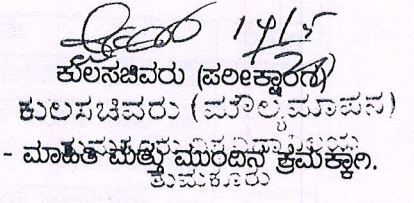 ಕುಲಸಚಿವರು (ಪರೀಕ್ಷಾಂಗ)
ಕುಲಸಚಿವರು (ಮೌಲ್ಯಮಾಪನ)
- ಮಾಹಿತಿ ಮತ್ತು ಮುಂದಿನ ಕ್ರಮಕ್ಕಾಗಿ.
ತುಮಕೂರು